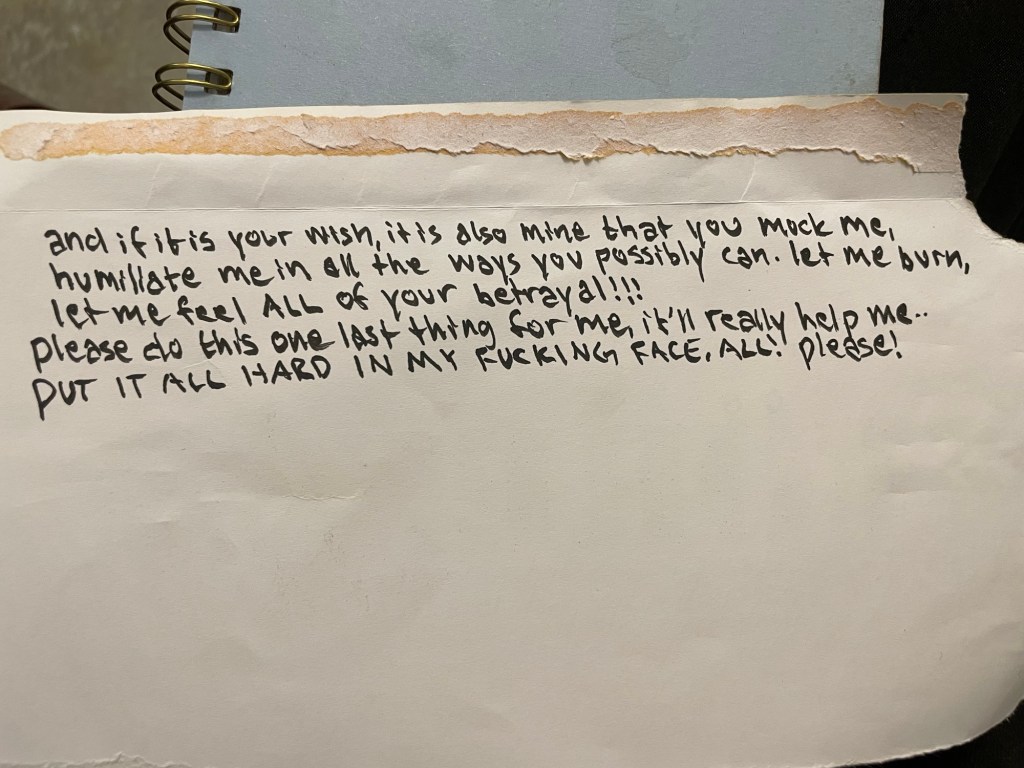 and if it is your wish, it is also mine that you mock me,
humiliate me in all the ways you possibly can. let me burn,
let me feel ALL of your betrayal!!!
please do this one last thing for me, it'll really help me..
PUT IT ALL HARD IN MY FUCKING FACE, ALL! please!